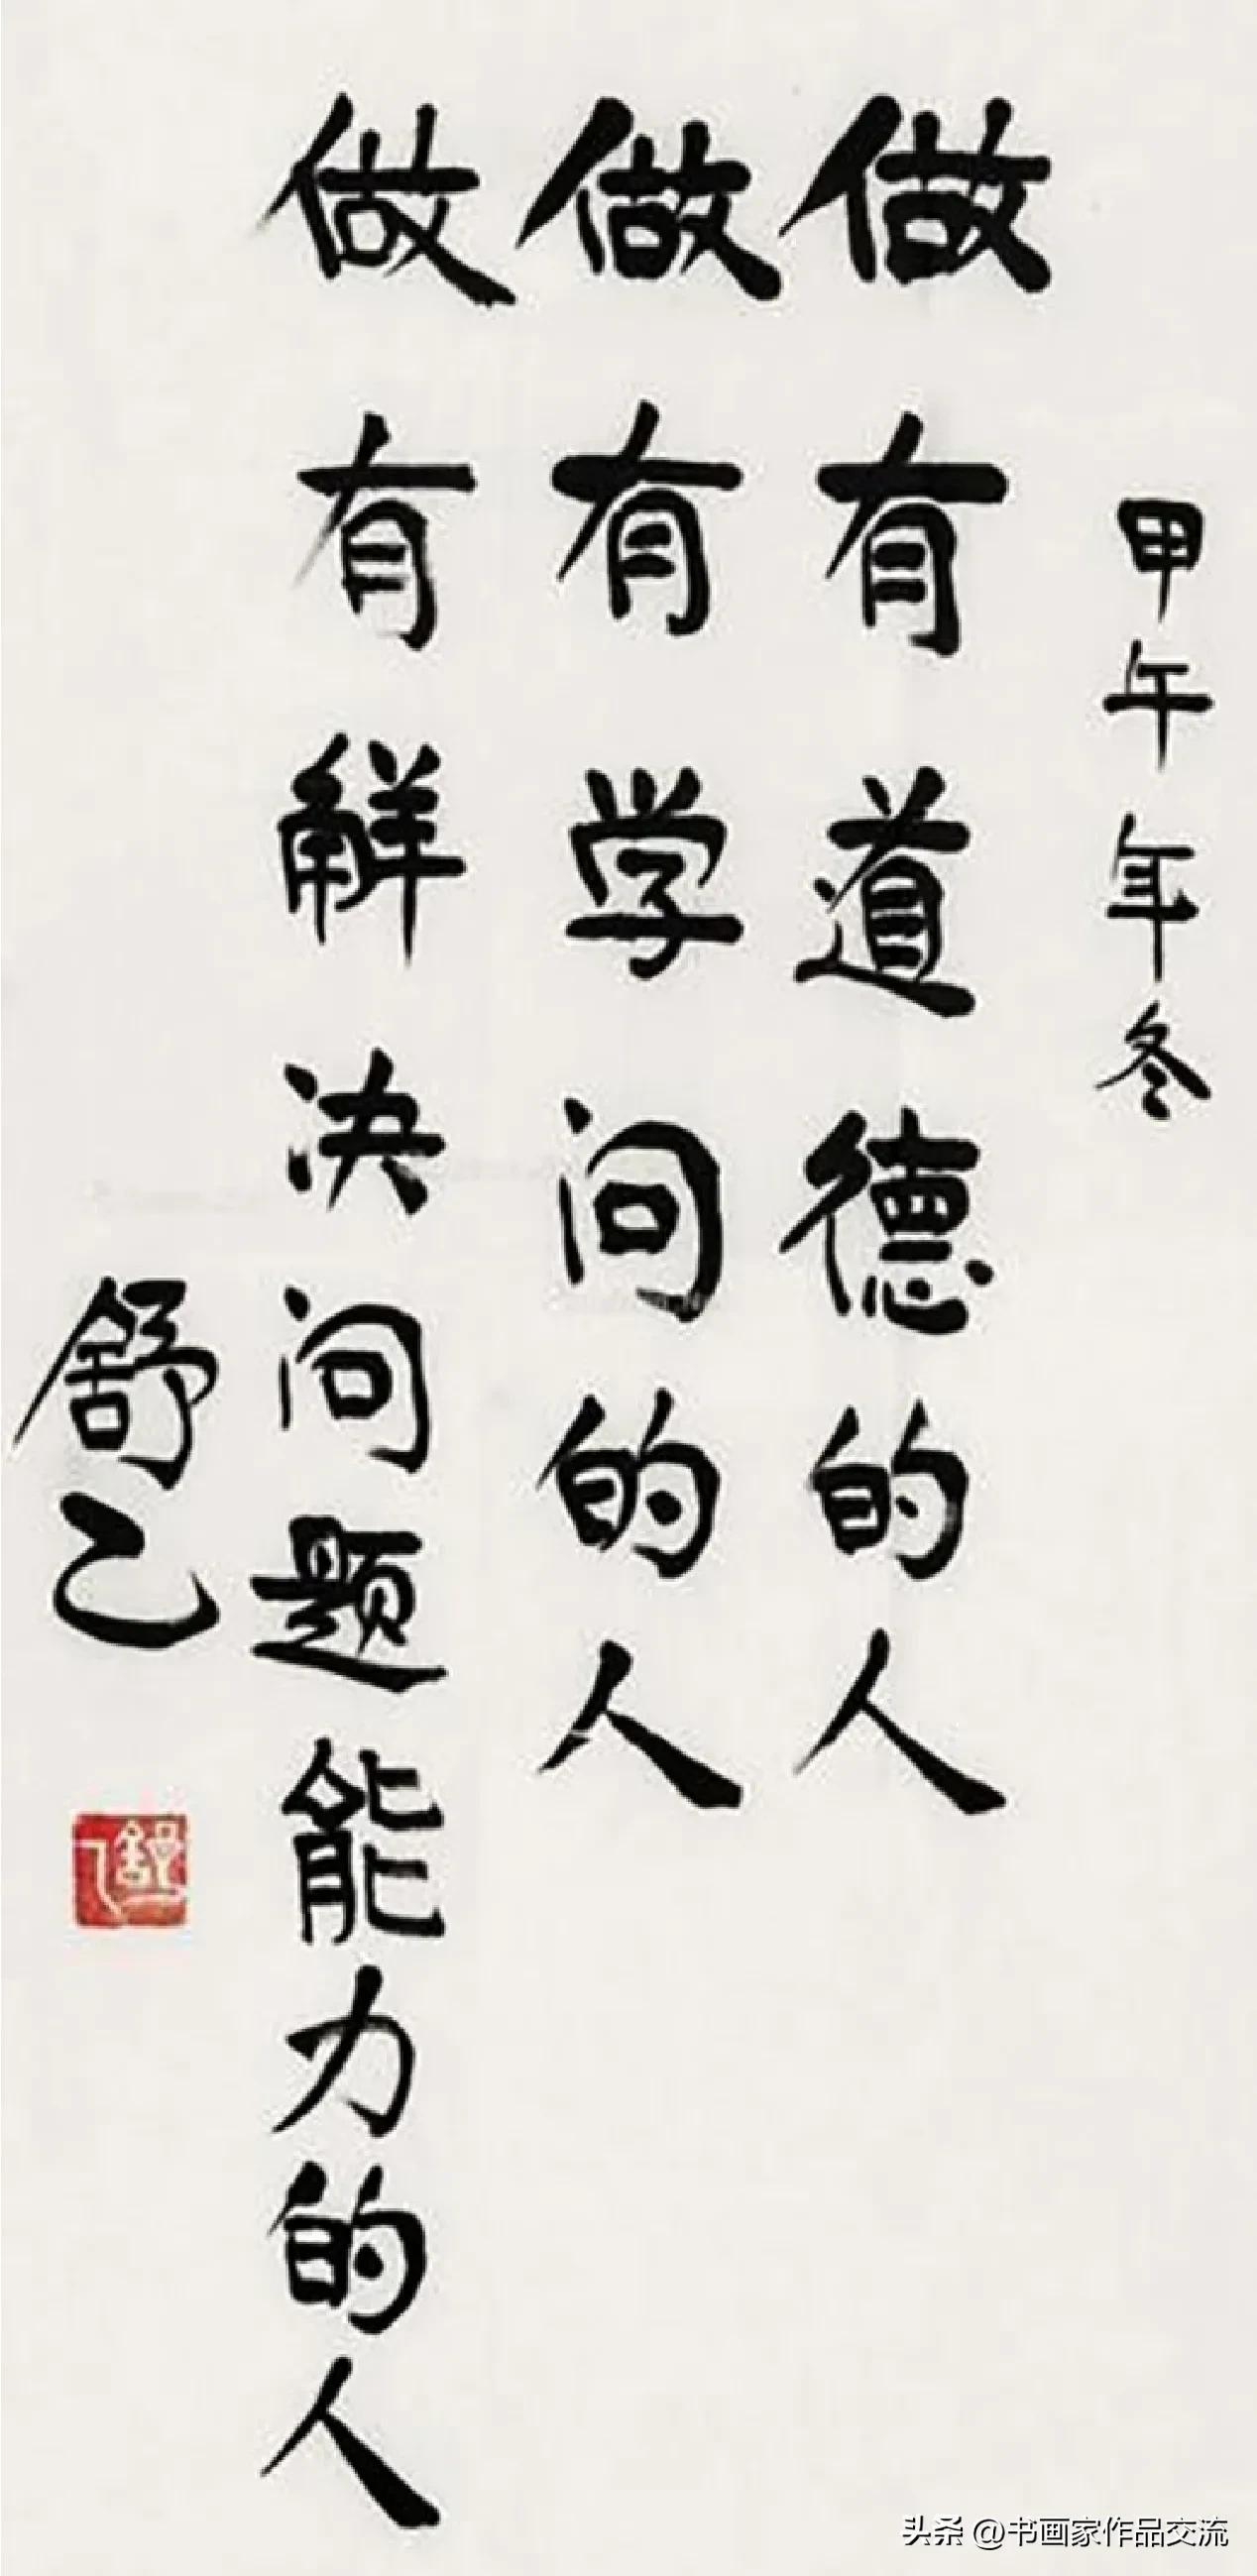 甲午年冬
做有道德的人
做有学问的人
做有解决问题能力的人
舒乙
舒乙
头条 @书画家作品交流